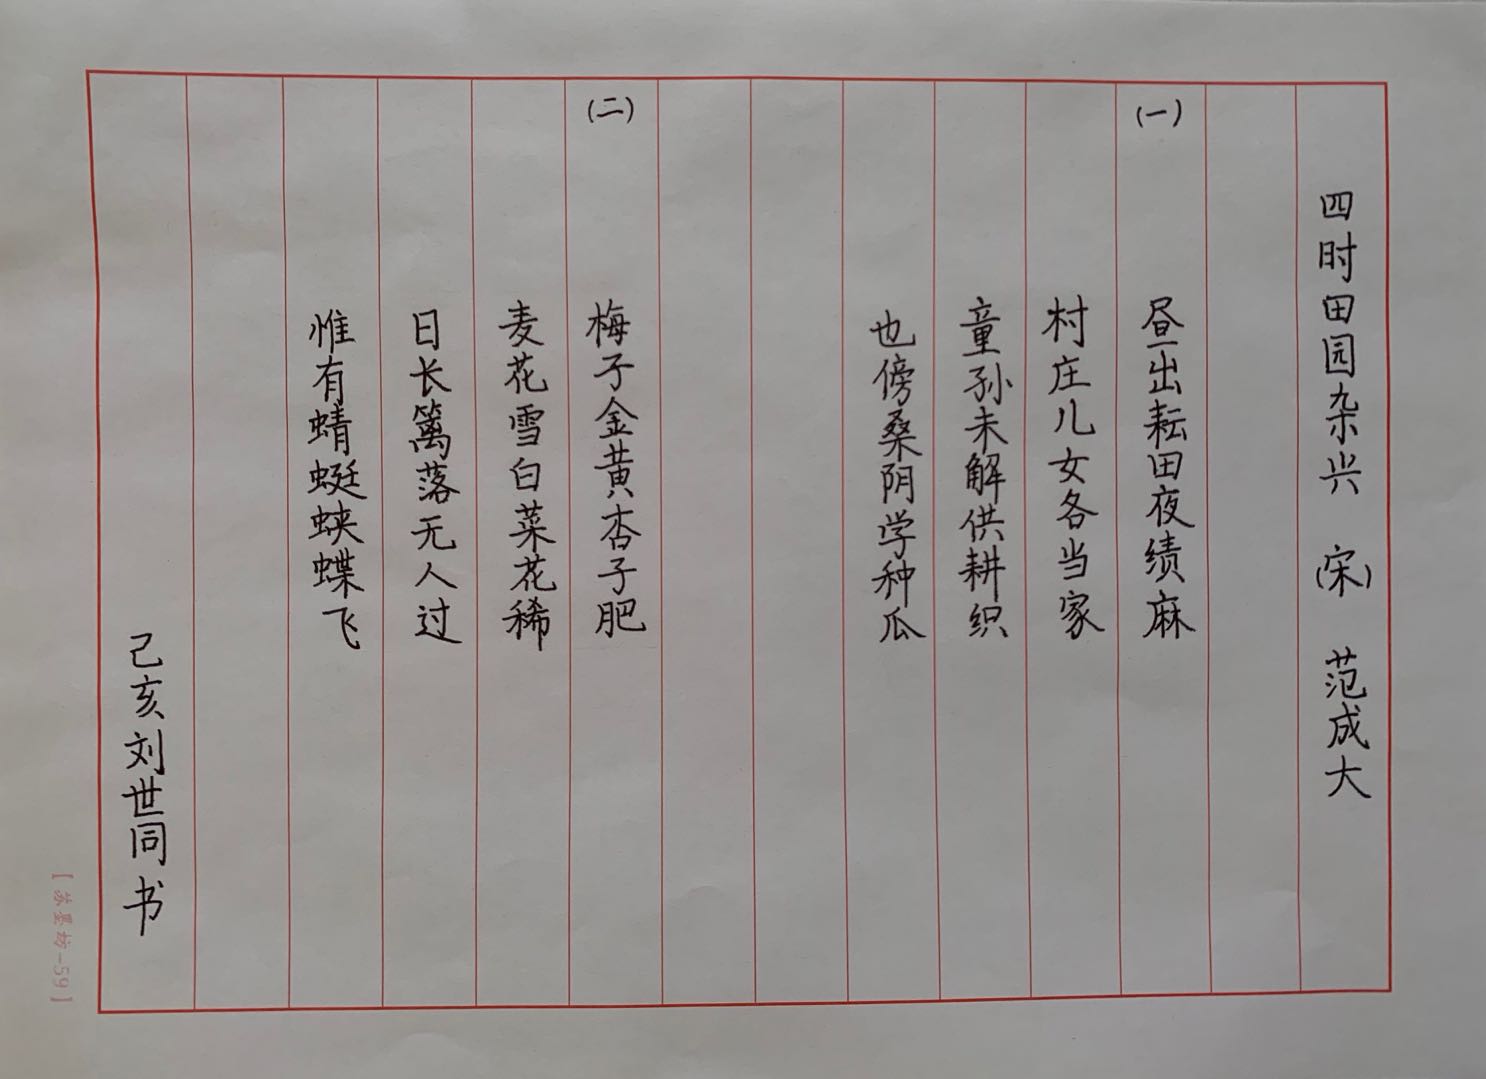 四时田园杂兴 (宋) 范成大
(一)
昼出耘田夜绩麻
村庄儿女各当家
童孙未解供耕织
也傍桑阴学种瓜
(二)
梅子金黄杏子肥
麦花雪白菜花稀
日长篱落无人过
惟有蜻蜓蛱蝶飞
己亥刘世同书
【苏墨坊-59】